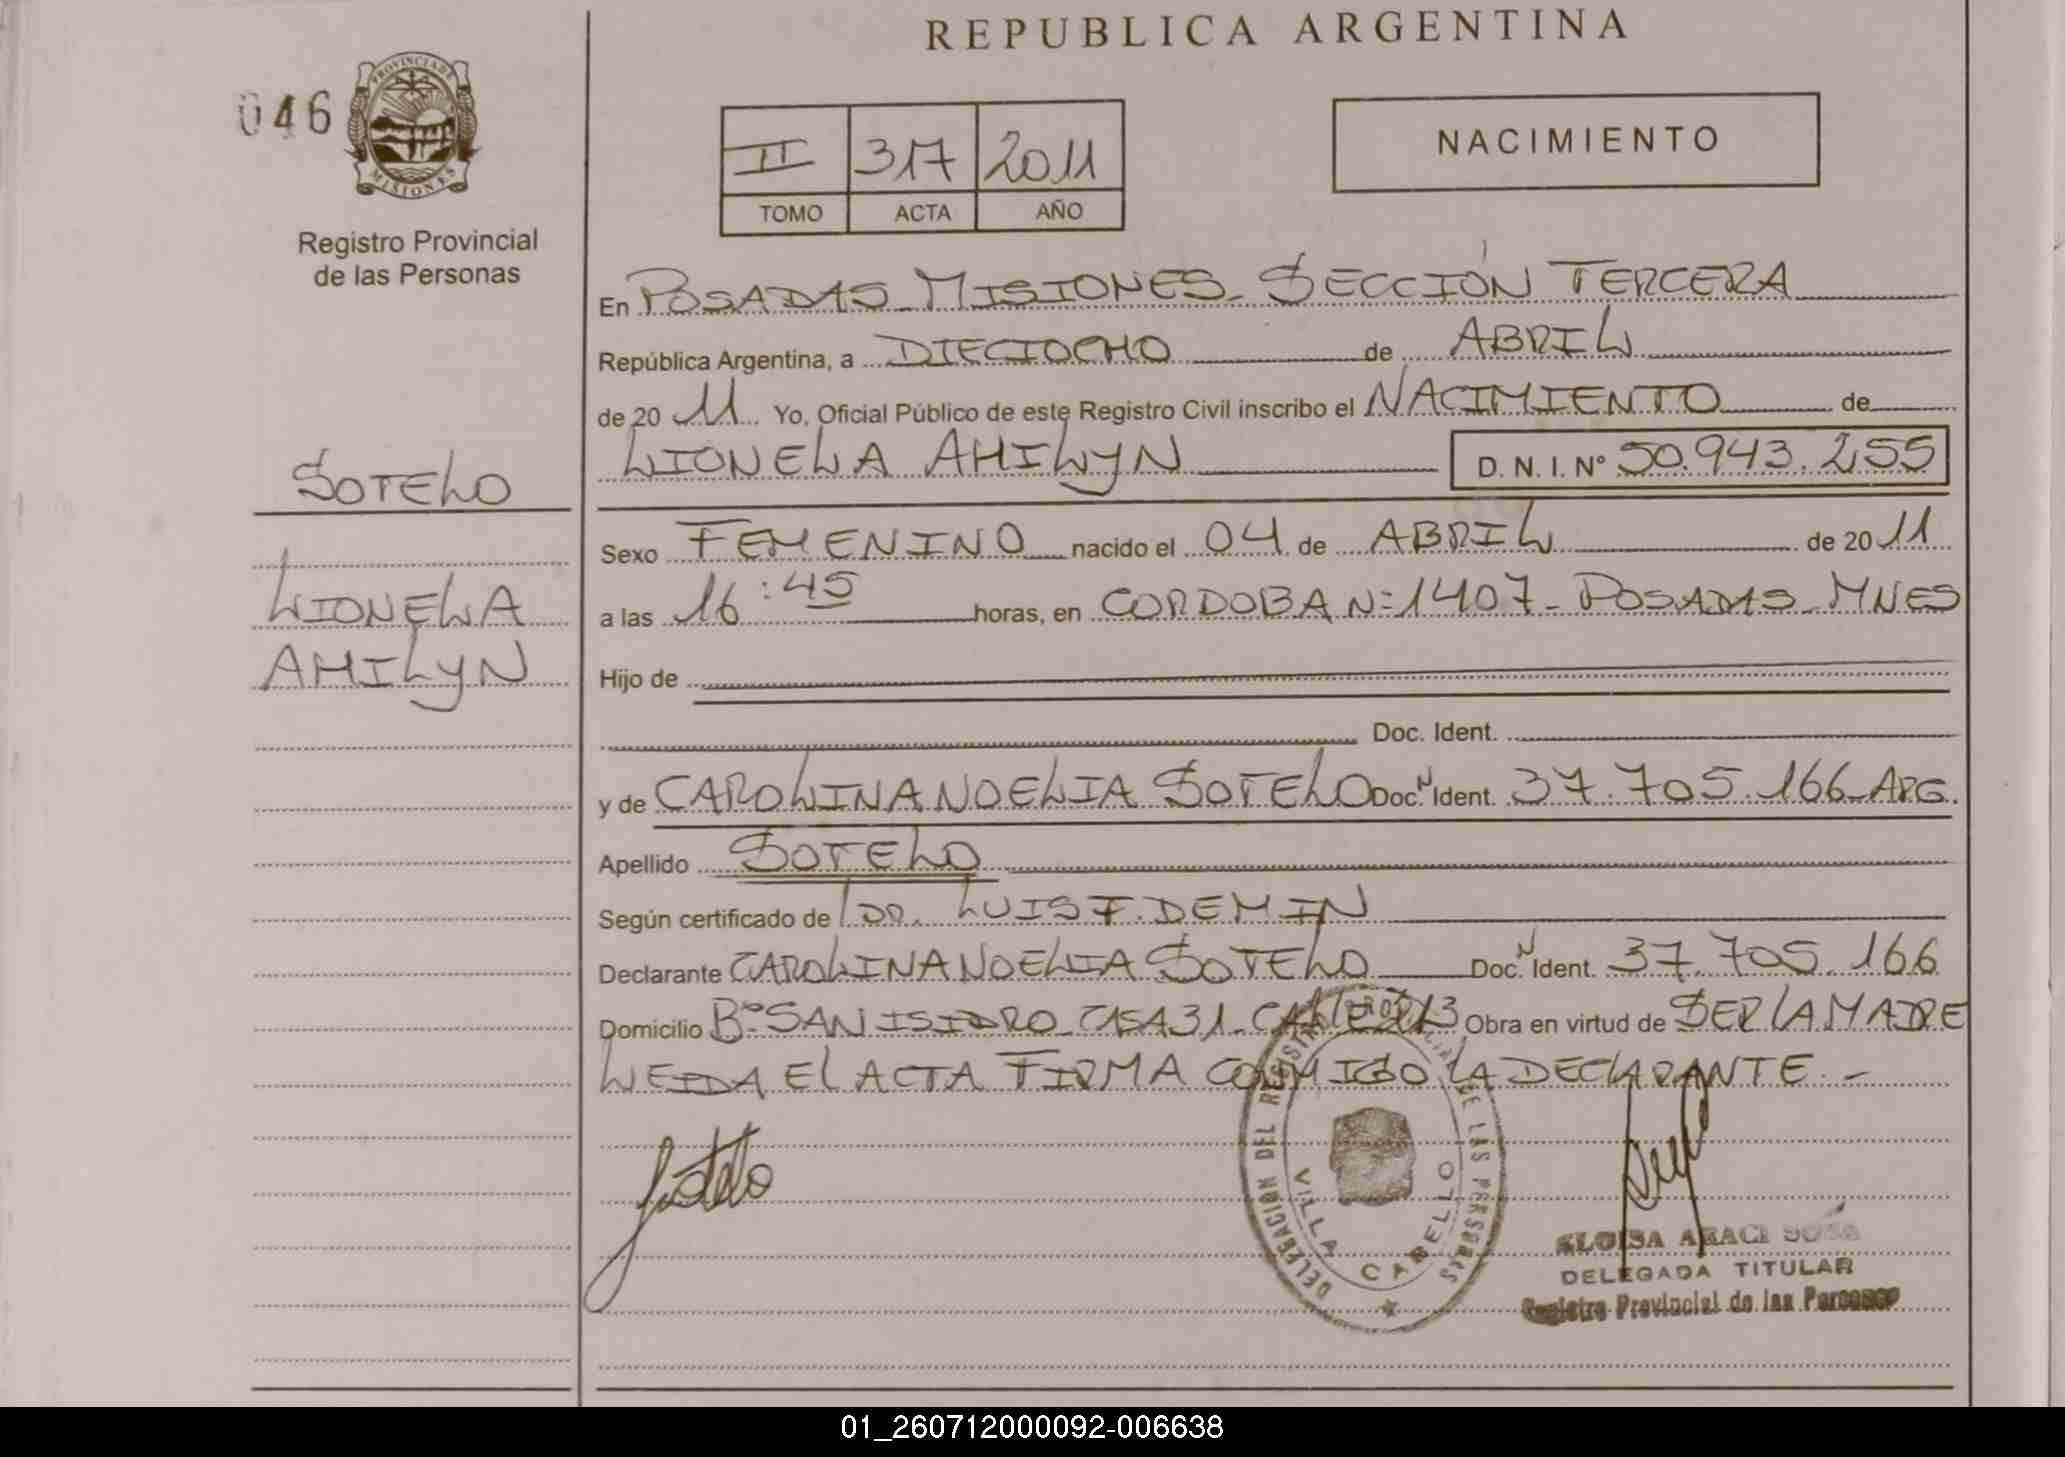 REPUBLICA ARGENTINA
046
PROVINCIA DE
MISIONES
Registro Provincial
de las Personas
II 317 2011
TOMO ACTA AÑO
NACIMIENTO
En POSADAS MISIONES SECCIÓN TERCERA
República Argentina, a DIECIOCHO de ABRIL
de 20 11 Yo, Oficial Público de este Registro Civil inscribo el NACIMIENTO de
LIONELA AHILYN D. N. I. Nº 50.943.255
SOTELO
LIONELA
AHILYN
Sexo FEMENINO nacido el 04 de ABRIL de 20 11
a las 16:45 horas, en CORDOBA Nº 1407 - POSADAS - MNES
Hijo de
Doc. Ident.
y de CAROLINA NOELIA SOTELO Doc. N Ident. 37.705.166 - ARG.
Apellido SOTELO
Según certificado de DR. LUIS F. DEMIN
Declarante CAROLINA NOELIA SOTELO Doc. N Ident. 37.705.166
Domicilio Bº SAN ISIDRO CASA 31 - Obra en virtud de SER LA MADRE
LEIDA EL ACTA FIRMA CONMIGO LA DECLARANTE. -
Sotelo
DELEGACION DEL REGISTRO PROVINCIAL DE LAS PERSONAS
VILLA CABELLO
ELOISA ARACI SOSA
DELEGADA TITULAR
Registro Provincial de las Personas
01_260712000092-006638